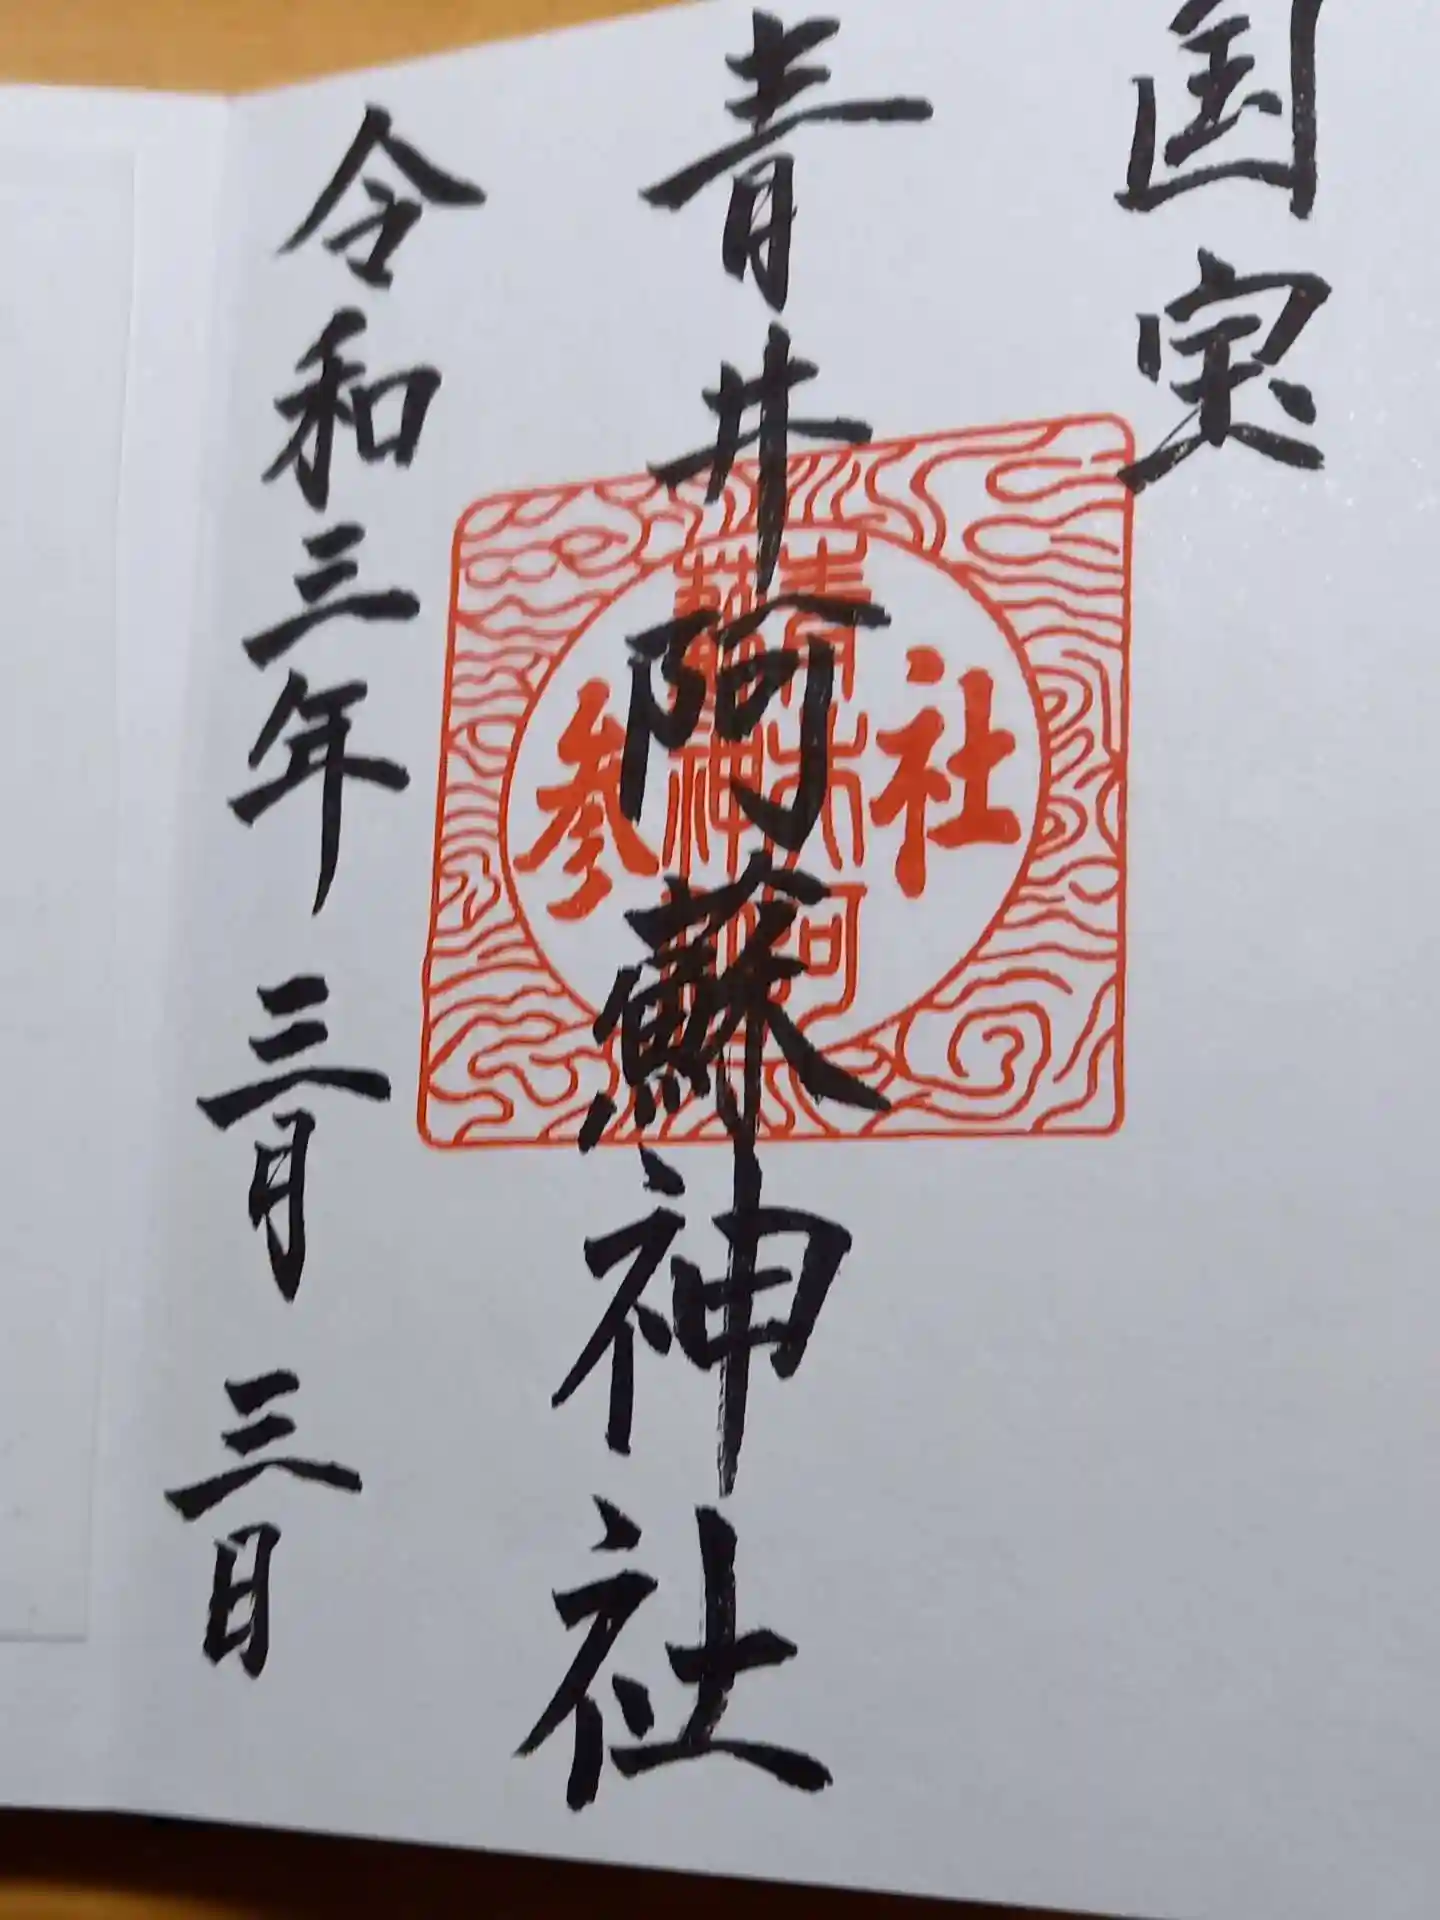 国宝
青井阿蘇神社
社参
青井阿蘇神社
令和三年三月三日